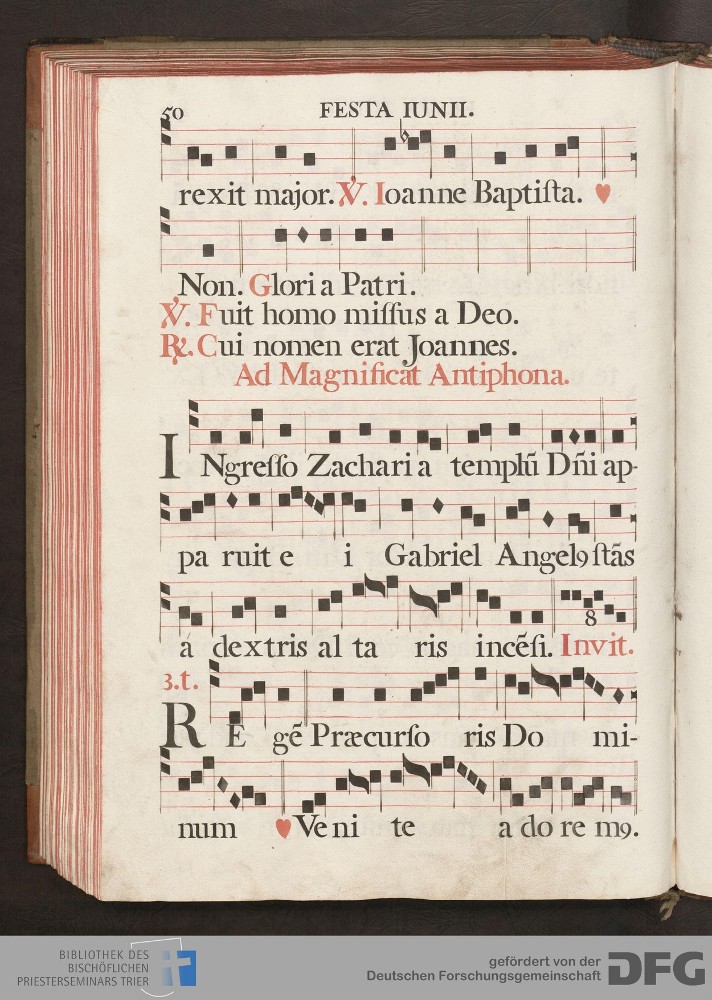 50 FESTA IUNII.
rexit major. ℣. Ioanne Baptiſta.
Non. Gloria Patri.
℣. Fuit homo miſſus a Deo.
℟. Cui nomen erat Joannes.
Ad Magnificat Antiphona.
INgreſſo Zacharia templū Dñi ap-
paruit ei Gabriel Angelꝰ ſtās
8
á dextris altaris incēſi. Invit.
3.t.
REgē Præcurſoris Domi-
num Venite adoremꝰ.
BIBLIOTHEK DES
BISCHÖFLICHEN
PRIESTERSEMINARS TRIER
gefördert von der
Deutschen Forschungsgemeinschaft
DFG